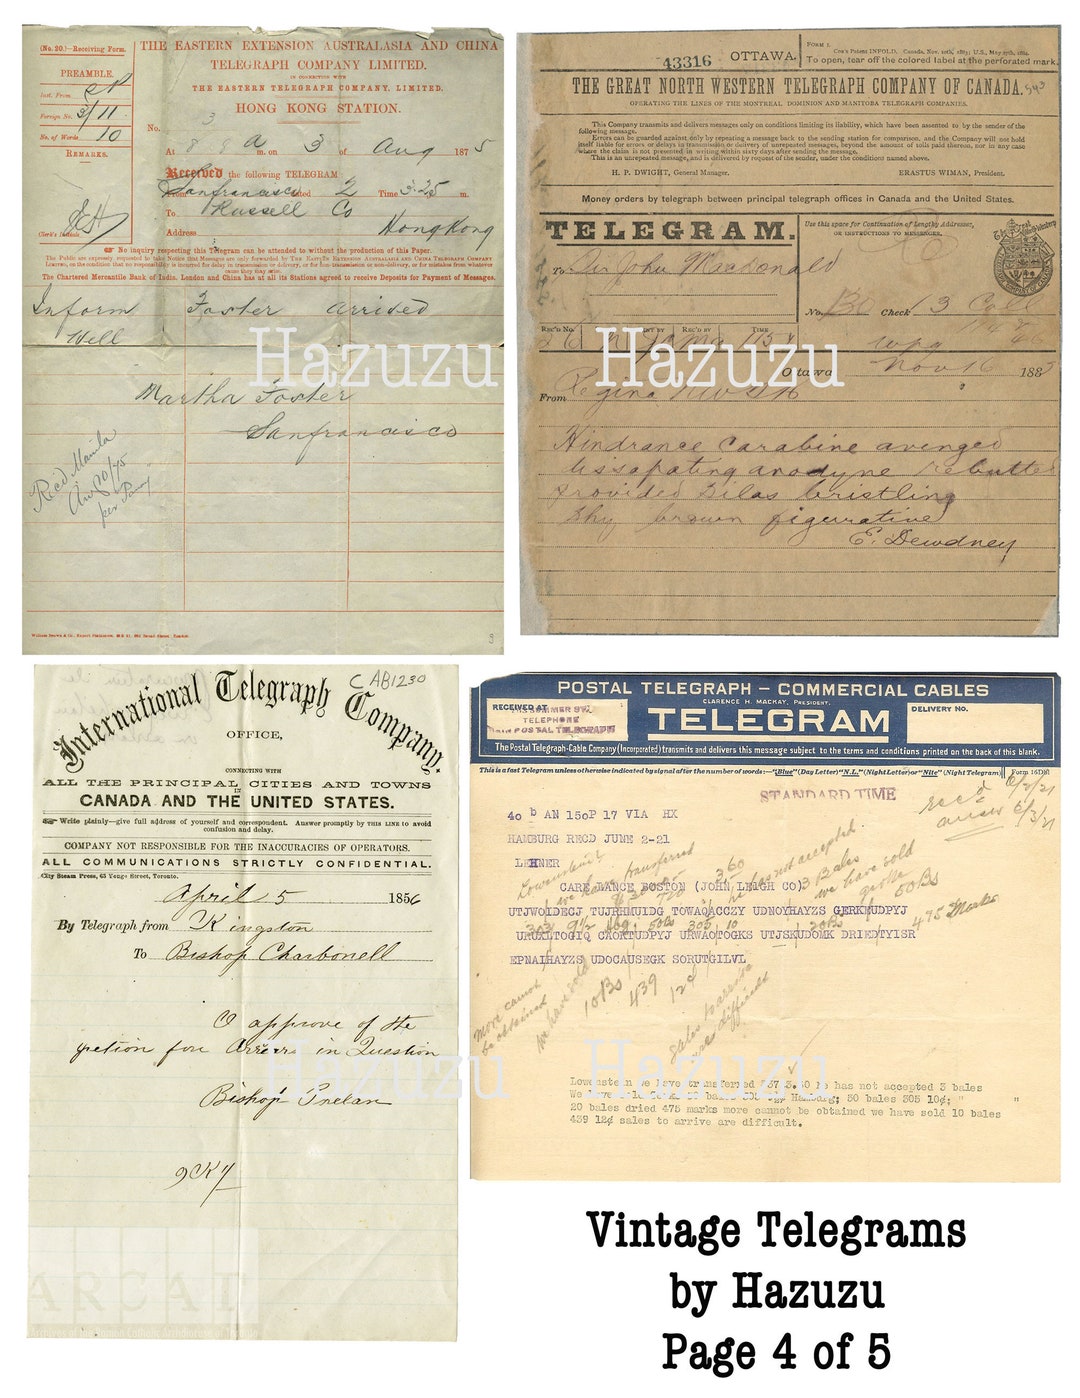 (No. 20.)—Receiving Form.
PREAMBLE.
Inst. From
Foreign No. 3/11
No. of Words 10
REMARKS.
Clerk's Initials
THE EASTERN EXTENSION AUSTRALASIA AND CHINA
TELEGRAPH COMPANY LIMITED.
IN CONNECTION WITH
THE EASTERN TELEGRAPH COMPANY, LIMITED.
HONG KONG STATION.
No. 3
At A m. on 3 of Aug 1875
Received the following TELEGRAM:
From Sanfrancisco 2 Time 3.25 m.
To Russell Co
Address Hongkong
No inquiry respecting this Telegram can be attended to without the production of this Paper.
The Chartered Mercantile Bank of India, London and China has at all its Stations agreed to receive Deposits for Payment of Messages.
Inform Foster arrived
Well
Martha Foster
Sanfrancisco
Rec'd Manila
Aug 20/75
Hazuzu
43316 OTTAWA.
FORM 1.
To open, tear off the colored label at the perforated mark.
THE GREAT NORTH WESTERN TELEGRAPH COMPANY OF CANADA.
OPERATING THE LINES OF THE MONTREAL DOMINION AND MANITOBA TELEGRAPH COMPANIES.
This Company transmits and delivers messages only on conditions limiting its liability, which have been assented to by the sender of the
following message.
Errors can be guarded against only by repeating a message back to the sending station for comparison, and the Company will not hold
itself liable for errors or delays in transmission or delivery of unrepeated messages, beyond the amount of tolls paid thereon, nor in any case
where the claim is not presented in writing within sixty days after sending the message.
This is an unrepeated message, and is delivered by request of the sender, under the conditions named above.
H. P. DWIGHT, General Manager. ERASTUS WIMAN, President.
Money orders by telegraph between principal telegraph offices in Canada and the United States.
TELEGRAM.
Use this space for Continuation of Lengthy Addresses,
OR INSTRUCTIONS TO MESSENGER.
To Sir John Macdonald
No. Check 13 Coll
Rec'd No. Sent by Rec'd by Time
Ottawa Nov 16 188
From Regina
Hindrance Carabine avenged
dissapating anodyne rebutted
provided Silas bristling
shy brown figurative
E. Dewdney
Hazuzu
C AB1230
International Telegraph Company.
OFFICE,
CONNECTING WITH
ALL THE PRINCIPAL CITIES AND TOWNS
IN
CANADA AND THE UNITED STATES.
Write plainly—give full address of yourself and correspondent. Answer promptly by THIS LINE to avoid
confusion and delay.
COMPANY NOT RESPONSIBLE FOR THE INACCURACIES OF OPERATORS.
ALL COMMUNICATIONS STRICTLY CONFIDENTIAL.
City Steam Press, 65 Yonge Street, Toronto.
April 5 1856
By Telegraph from Kingston
To Bishop Charbonell
I approve of the
petition for Arrears in Question
Bishop Phelan
Hazuzu
ARCAT
POSTAL TELEGRAPH – COMMERCIAL CABLES
CLARENCE H. MACKAY, PRESIDENT.
RECEIVED AT
TELEPHONE
TELEGRAM
DELIVERY No.
The Postal Telegraph-Cable Company (Incorporated) transmits and delivers this message subject to the terms and conditions printed on the back of this blank.
This is a fast Telegram unless otherwise indicated by signal after the number of words:—"Blue" (Day Letter) "N.L." (Night Letter) or "Nite" (Night Telegram)
STANDARD TIME
rec'd 6/2/21
answ 6/3/21
40 b AN 150P 17 VIA HX
HAMBURG RECD JUNE 2-21
LEHNER
CARE LANCE BOSTON (JOHN LEIGH CO)
UTJWOIDECJ TUJRHMUIDG TOWAQACCZY UDNOYHAYZS GERKMUDPYJ
URUXLTOGIQ CAOKTUDPYJ URWAOTOGKS UTJSKUDOMK DRIEDTYISR
EPNAIHAYZS UDOCAUSEGK SORUTGILVL
we have transferred
has not accepted
3 Bales
we have sold
50Bs
475 Marks
more cannot
be obtained
we have sold
10Bs
439
12¢
are difficult
Hazuzu
20 bales dried 475 marks more cannot be obtained we have sold 10 bales
439 12¢ sales to arrive are difficult.
Vintage Telegrams
by Hazuzu
Page 4 of 5